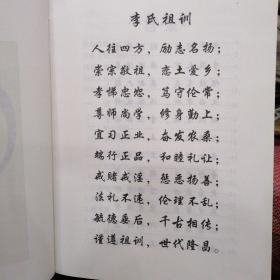 李氏祖训
人往四方，励志名扬；
崇宗敬祖，恋土爱乡；
孝悌忠恕，笃守伦常；
尊师尚学，修身勤上；
宜习正业，奋发农桑；
端行正品，和睦礼让；
戒赌戒淫，惩恶扬善；
法礼不违，伦理不乱；
敏德垂后，千古相传；
谨遵祖训，世代隆昌。